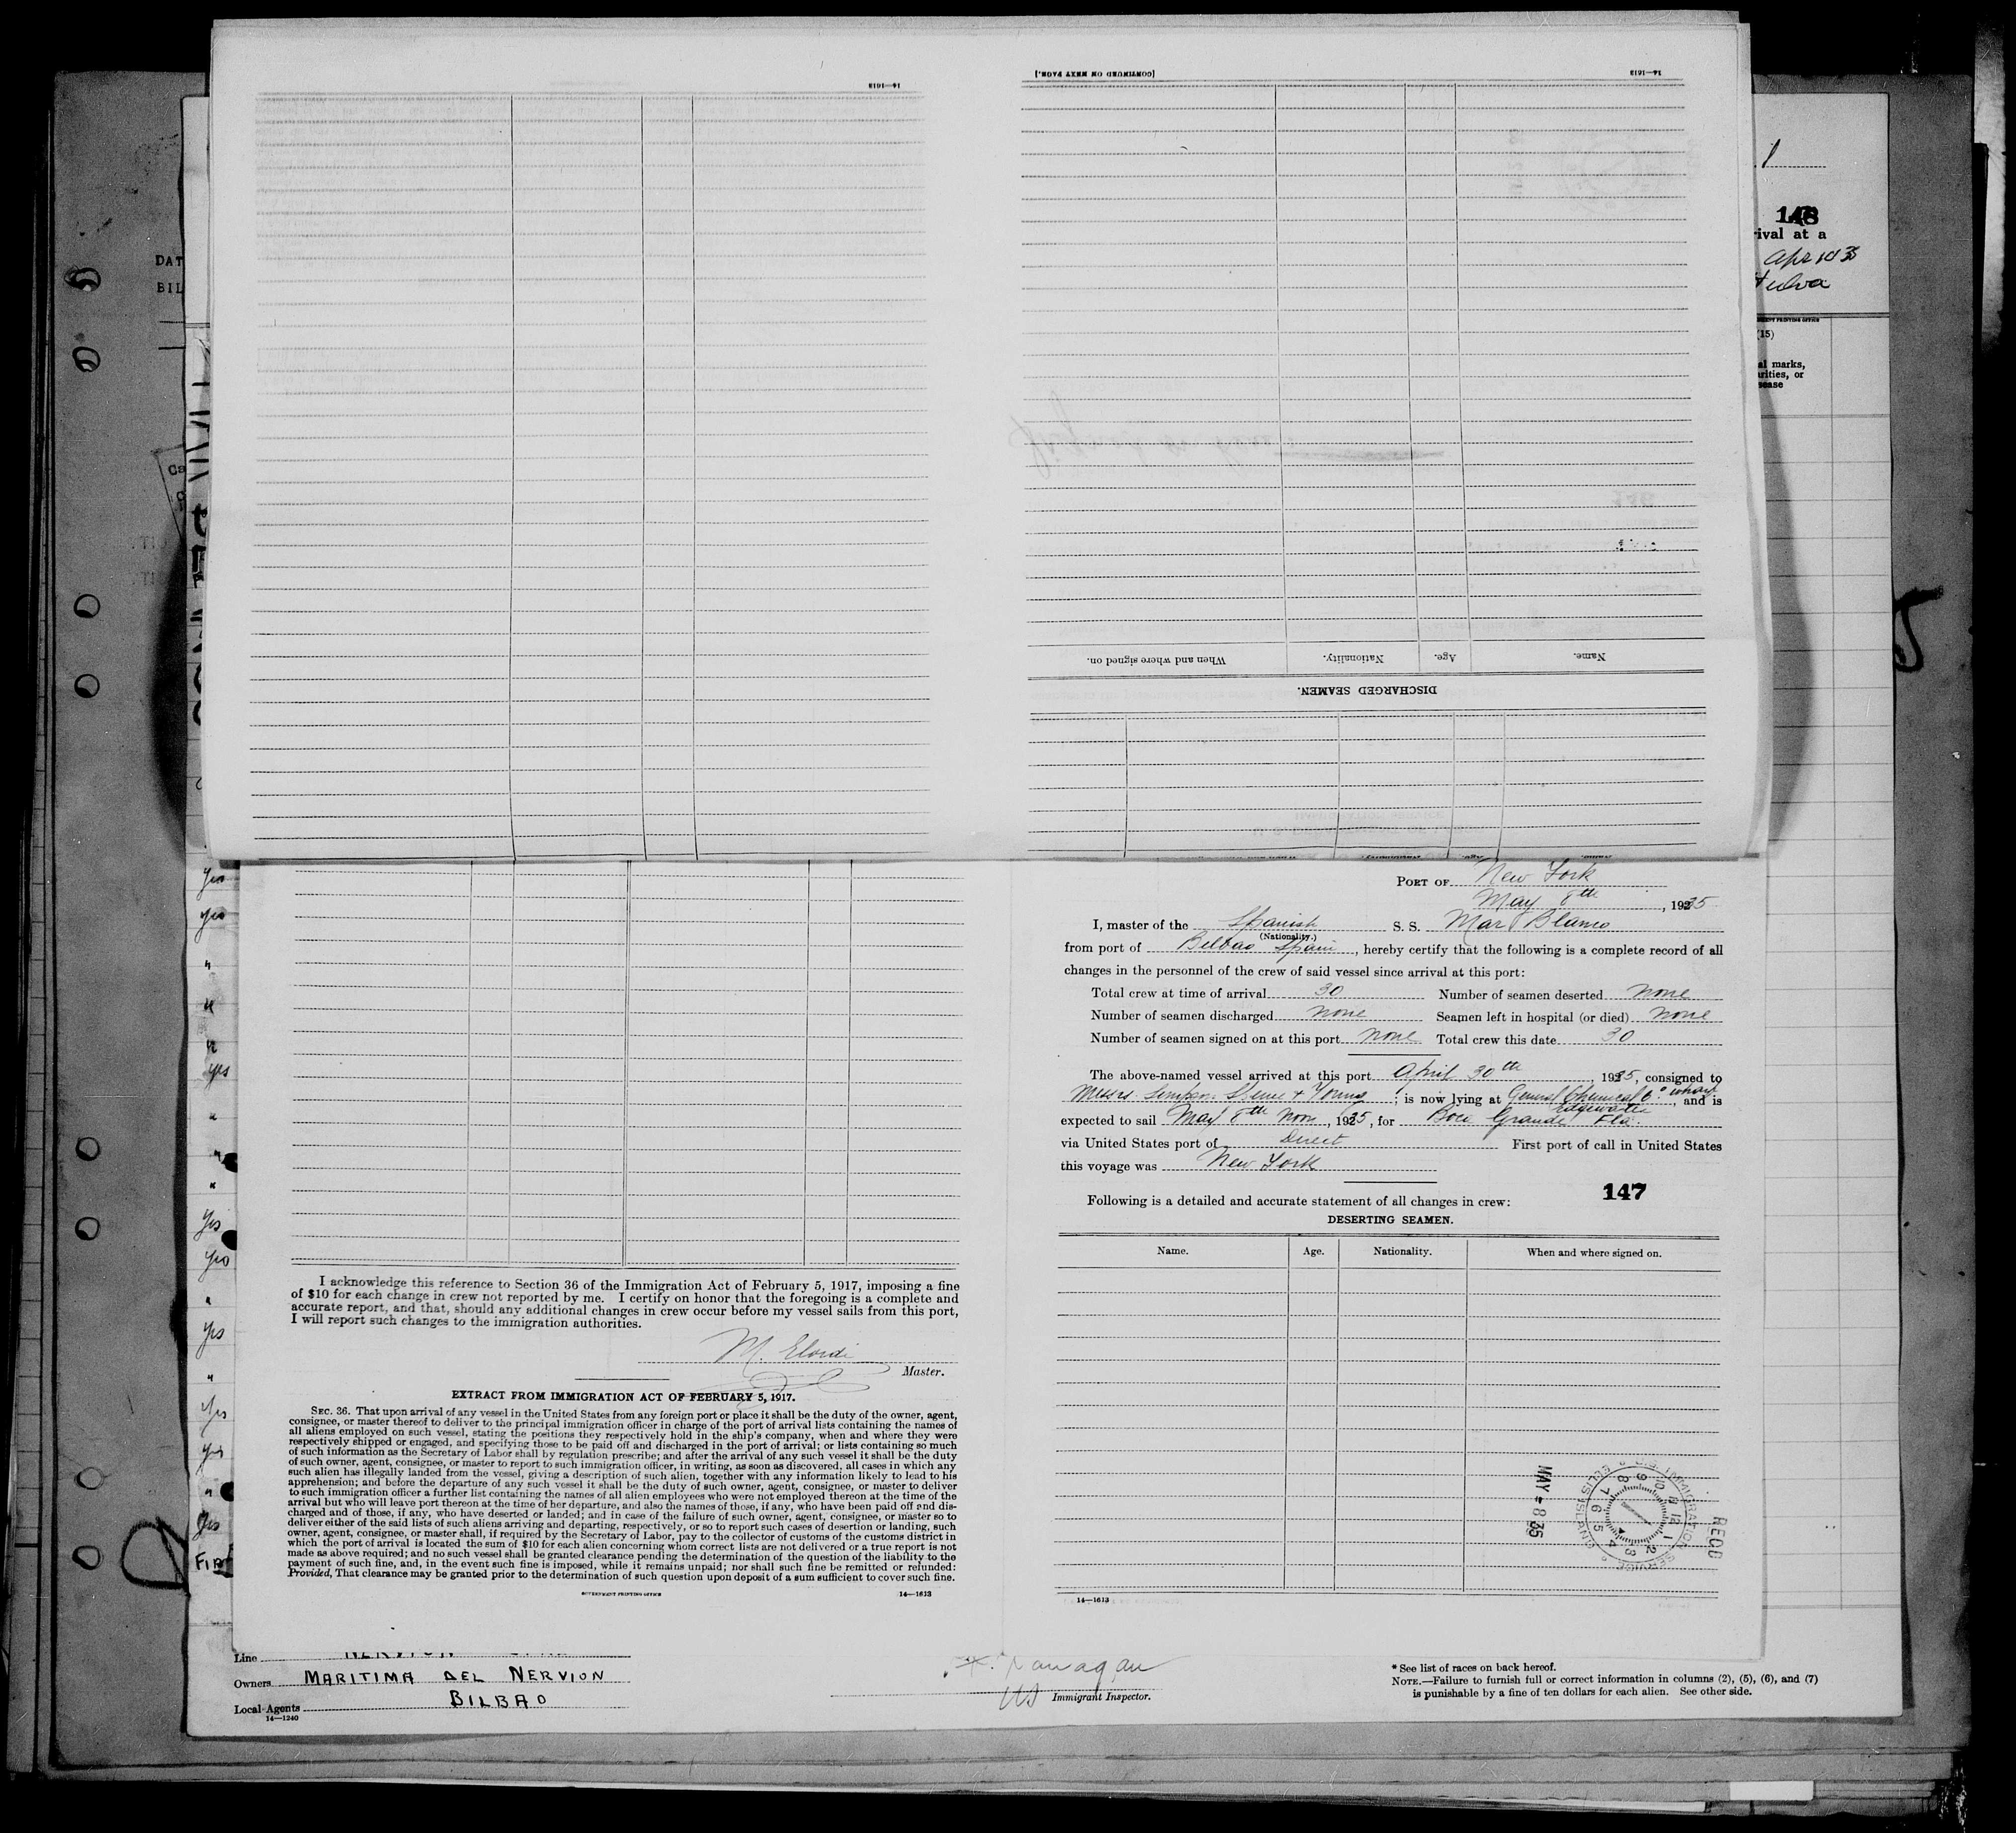 [CONTINUED ON NEXT PAGE.]
14—1613
14—1613
When and where signed on.
Nationality.
Age.
Name.
DISCHARGED SEAMEN.
1
148
ival at a
Huelva
(15)
al marks,
arities, or
sease
DAT
BIL
Ca
yes
yes
"
"
"
yes
"
"
"
yes
yes
"
yes
"
yes
yes
"
yes
FIR
PORT OF New York
May 8th, 1935
I, master of the Spanish S. S. Mar Blanco
(Nationality.)
from port of Bilbao Spain, hereby certify that the following is a complete record of all
changes in the personnel of the crew of said vessel since arrival at this port:
Total crew at time of arrival 30 Number of seamen deserted none
Number of seamen discharged none Seamen left in hospital (or died) none
Number of seamen signed on at this port none Total crew this date 30
The above-named vessel arrived at this port April 30th, 1935, consigned to
Messrs. Simpson Spence & Young; is now lying at General Chemical Co. wharf Edgewater, and is
expected to sail May 8th noon, 1935, for Boca Grande Fla.
via United States port of Direct First port of call in United States
this voyage was New York
147
Following is a detailed and accurate statement of all changes in crew:
DESERTING SEAMEN.
Name. Age. Nationality. When and where signed on.
RECD
MAY - 8 35
IMMIGRATION SERVICE
ELLIS ISLAND
14—1613
I acknowledge this reference to Section 36 of the Immigration Act of February 5, 1917, imposing a fine
of $10 for each change in crew not reported by me. I certify on honor that the foregoing is a complete and
accurate report, and that, should any additional changes in crew occur before my vessel sails from this port,
I will report such changes to the immigration authorities.
M. Elordi
Master.
EXTRACT FROM IMMIGRATION ACT OF FEBRUARY 5, 1917.
SEC. 36. That upon arrival of any vessel in the United States from any foreign port or place it shall be the duty of the owner, agent,
consignee, or master thereof to deliver to the principal immigration officer in charge of the port of arrival lists containing the names of
all aliens employed on such vessel, stating the positions they respectively hold in the ship's company, when and where they were
respectively shipped or engaged, and specifying those to be paid off and discharged in the port of arrival; or lists containing so much
of such information as the Secretary of Labor shall by regulation prescribe; and after the arrival of any such vessel it shall be the duty
of such owner, agent, consignee, or master to report to such immigration officer, in writing, as soon as discovered, all cases in which any
such alien has illegally landed from the vessel, giving a description of such alien, together with any information likely to lead to his
apprehension; and before the departure of any such vessel it shall be the duty of such owner, agent, consignee, or master to deliver
to such immigration officer a further list containing the names of all alien employees who were not employed thereon at the time of the
arrival but who will leave port thereon at the time of her departure, and also the names of those, if any, who have been paid off and dis-
charged and of those, if any, who have deserted or landed; and in case of the failure of such owner, agent, consignee, or master so to
deliver either of the said lists of such aliens arriving and departing, respectively, or so to report such cases of desertion or landing, such
owner, agent, consignee, or master shall, if required by the Secretary of Labor, pay to the collector of customs of the customs district in
which the port of arrival is located the sum of $10 for each alien concerning whom correct lists are not delivered or a true report is not
made as above required; and no such vessel shall be granted clearance pending the determination of the question of the liability to the
payment of such fine, and, in the event such fine is imposed, while it remains unpaid; nor shall such fine be remitted or refunded:
Provided, That clearance may be granted prior to the determination of such question upon deposit of a sum sufficient to cover such fine.
GOVERNMENT PRINTING OFFICE
14—1613
Line
Owners MARITIMA DEL NERVION
Local Agents BILBAO
14—1240
US Immigrant Inspector.
* See list of races on back hereof.
NOTE.—Failure to furnish full or correct information in columns (2), (5), (6), and (7)
is punishable by a fine of ten dollars for each alien. See other side.